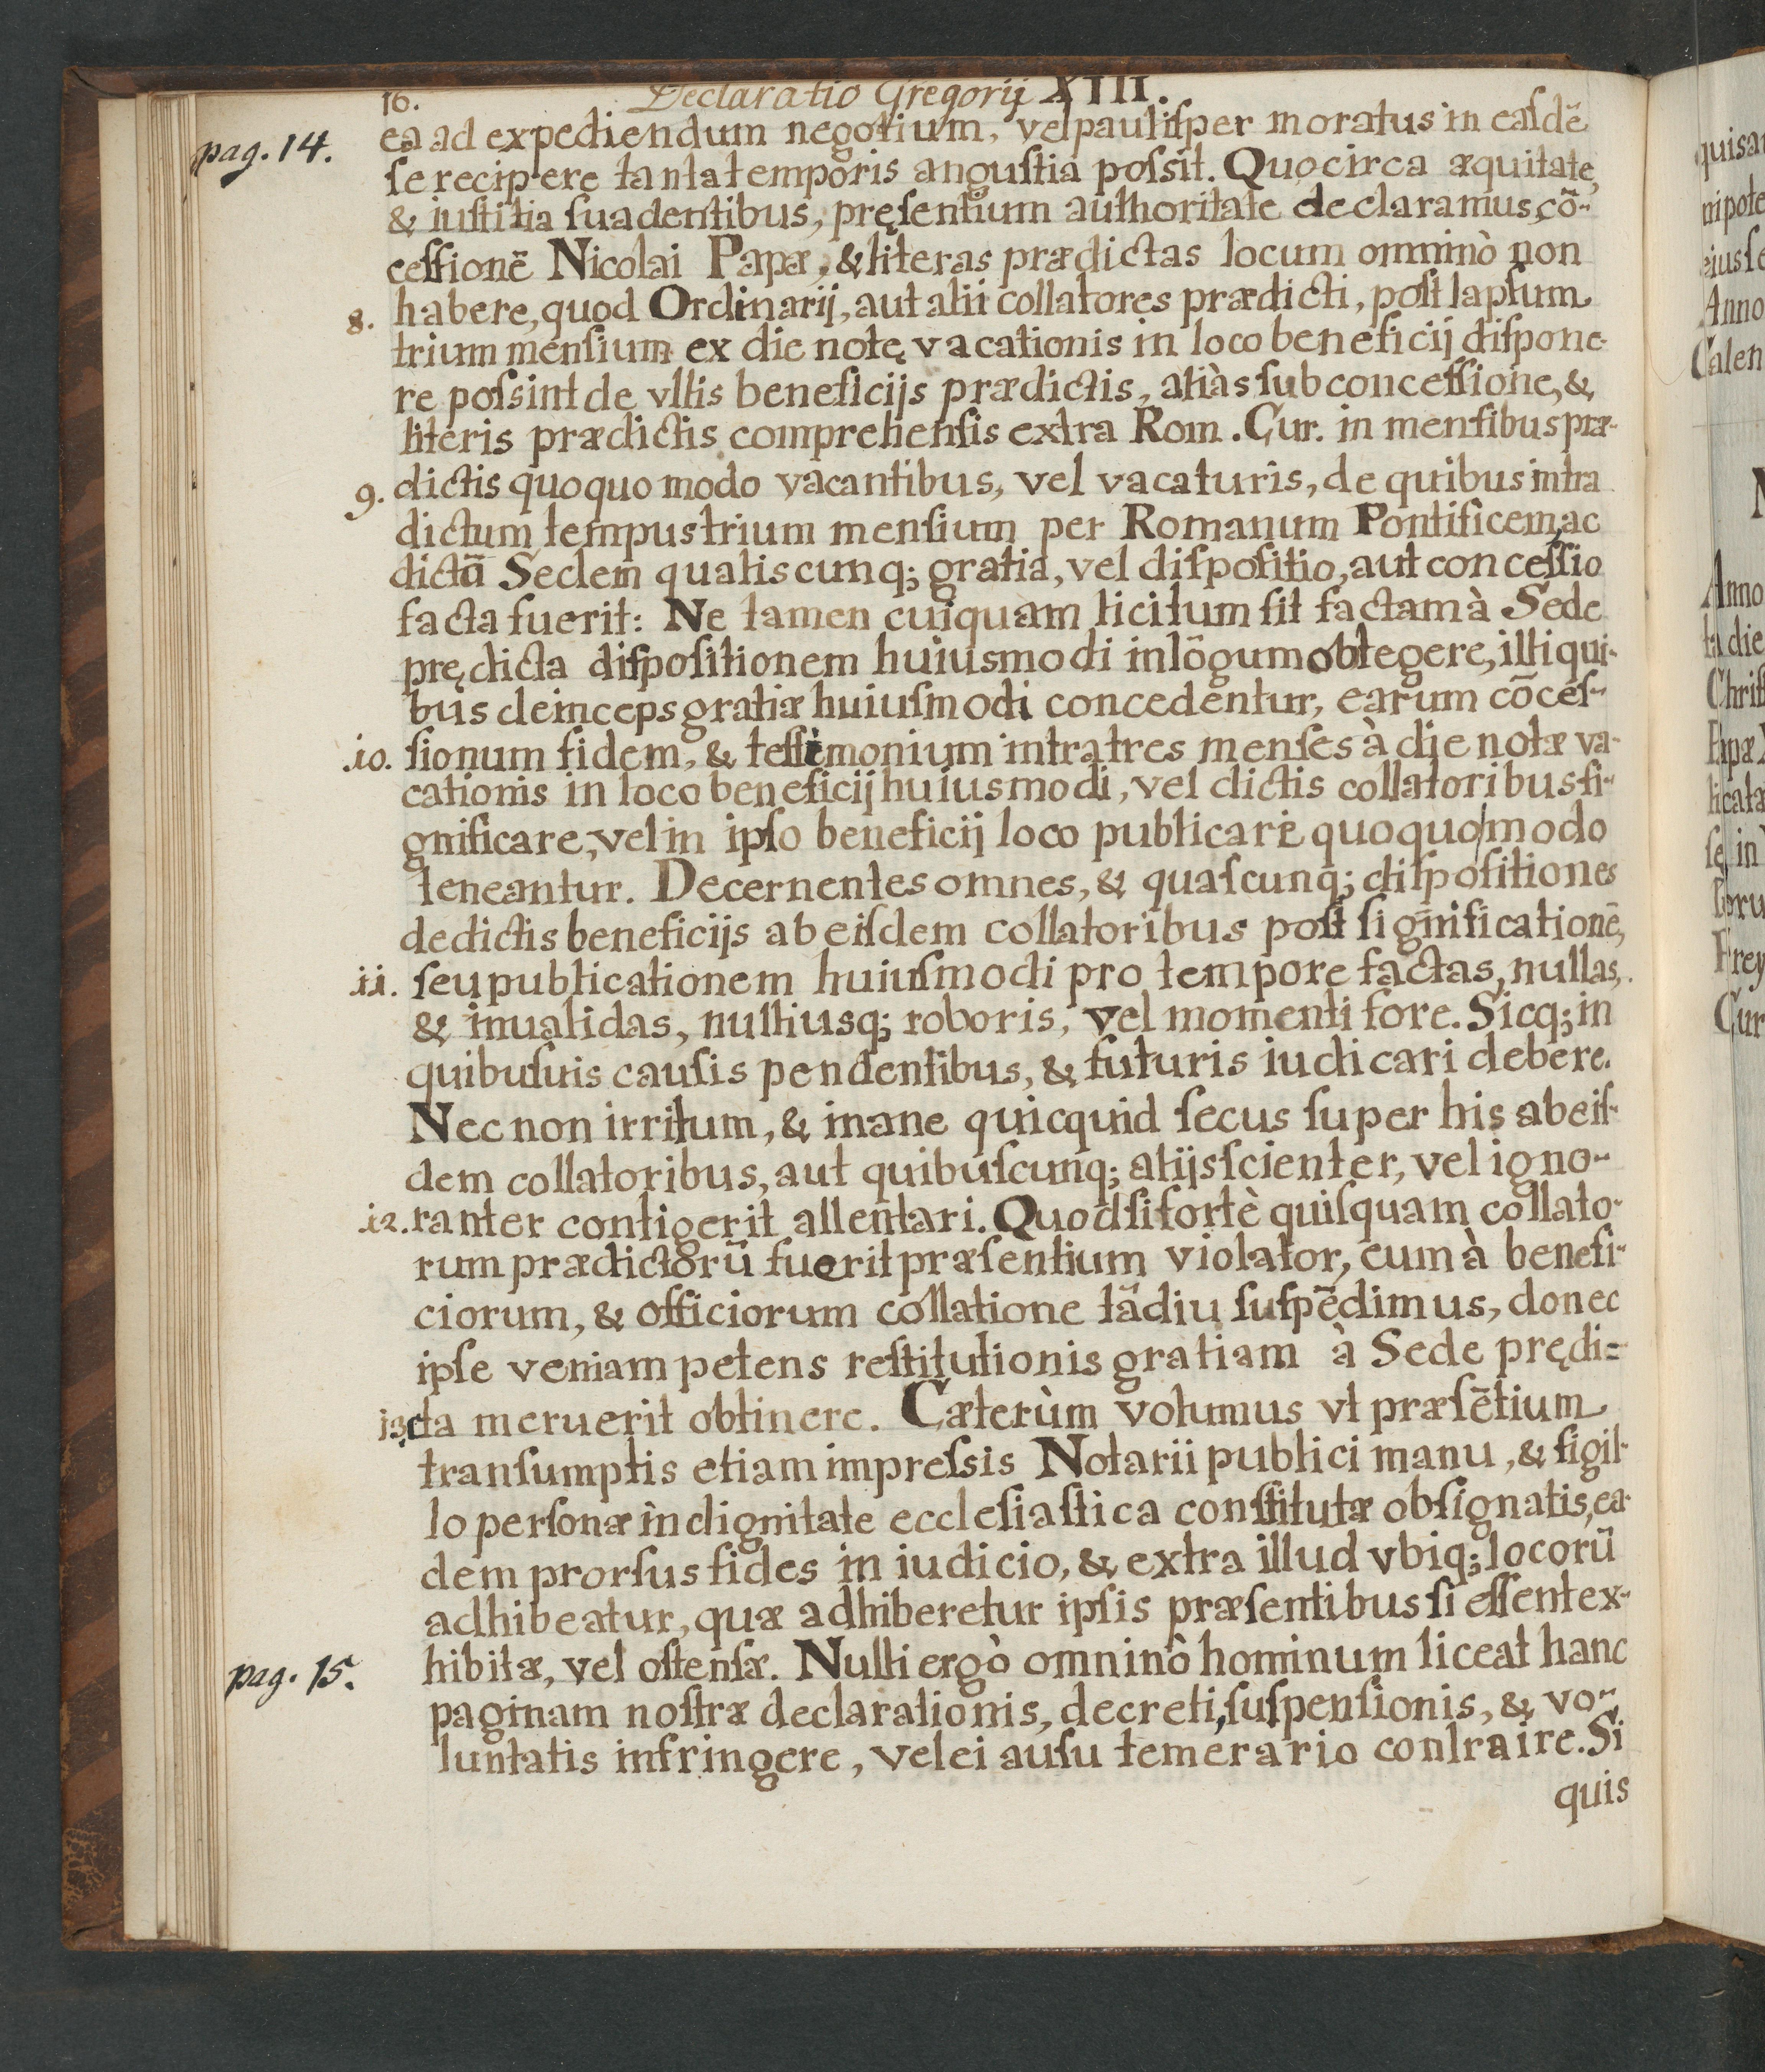 16. Declaratio Gregorij XIII.
pag. 14.
ea ad expediendum negotium, vel paulisper moratus in easdē
se recipere tanta temporis angustia possit. Quocirca æquitate,
& iustitia suadentibus, pręsentium authoritate declaramus, cō-
cessionē Nicolai Papæ, & literas prædictas locum omninò non
8. habere, quod Ordinarij, aut alii collatores prædicti, post lapsum
trium mensium ex die notę vacationis in loco beneficij dispone-
re possint de vllis beneficijs prædictis, aliàs sub concessione, &
literis prædictis comprehensis extra Rom. Cur. in mensibus præ-
9. dictis quoquo modo vacantibus, vel vacaturis, de quibus intra
dictum tempus trium mensium per Romanum Pontificem, ac
dictā Sedem qualiscunq; gratia, vel dispositio, aut concessio
facta fuerit: Ne tamen cuiquam licitum sit factam à Sede
prędicta dispositionem huiusmodi in lōgum obtegere, illi qui-
bus deinceps gratiæ huiusmodi concedentur, earum cōces-
.10. sionum fidem, & testimonium intra tres menses à die notæ va-
cationis in loco beneficij huiusmodi, vel dictis collatoribus si-
gnificare, vel in ipso beneficij loco publicari quoquo modo
teneantur. Decernentes omnes, & quascunq; dispositiones
de dictis beneficijs ab eisdem collatoribus post significationē,
.11. seu publicationem huiusmodi pro tempore factas, nullas,
& inualidas, nulliusq; roboris, vel momenti fore. Sicq; in
quibusuis causis pendentibus, & futuris iudicari debere.
Nec non irritum, & inane quicquid secus super his ab eis-
dem collatoribus, aut quibuscunq; alijs scienter, vel igno-
.12. ranter contigerit allentari. Quod si fortè quisquam collato-
rum prædictorū fuerit præsentium violator, eum à benefi-
ciorum, & officiorum collatione tādiu suspēdimus, donec
ipse veniam petens restitutionis gratiam à Sede prędi=
13. cta meruerit obtinere. Cæterùm volumus vt præsētium
transumptis etiam impressis Notarii publici manu, & sigil-
lo personæ in dignitate ecclesiastica constitutæ obsignatis, ea-
dem prorsus fides in iudicio, & extra illud vbiq; locorū
adhibeatur, quæ adhiberetur ipsis præsentibus si essent ex-
pag. 15. hibitæ, vel ostensæ. Nulli ergò omninò hominum liceat hanc
paginam nostræ declarationis, decreti, suspensionis, & vo-
luntatis infringere, vel ei ausu temerario contraire. Si
quis